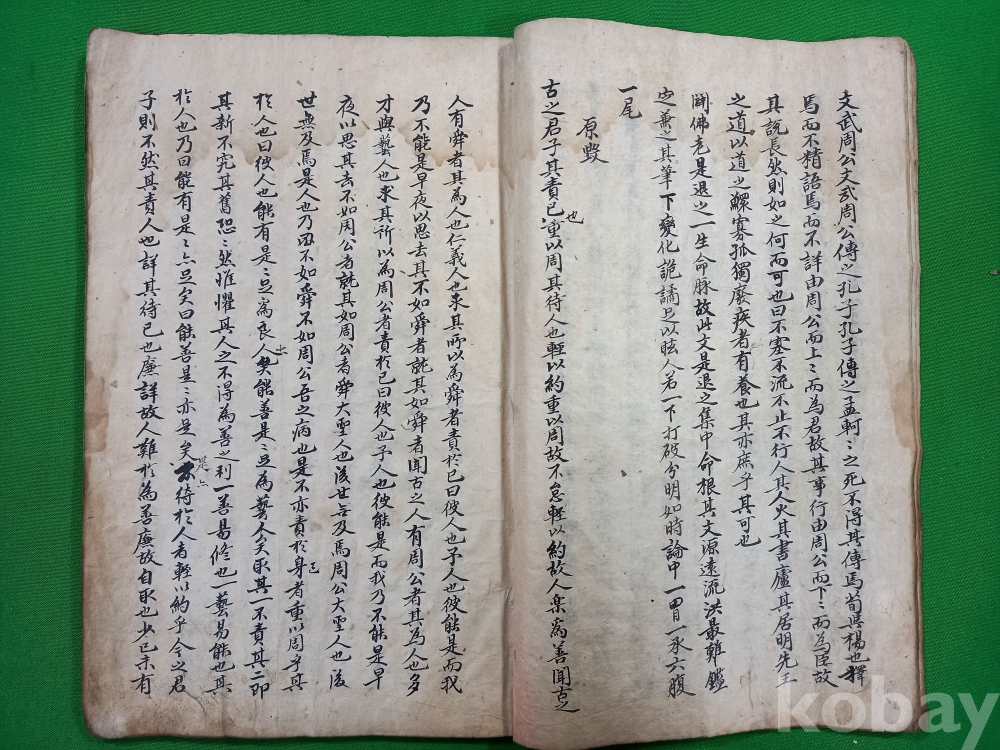 文武周公文武周公傳之孔子孔子傳之孟軻〻之死不得其傳焉荀與楊也擇
焉而不精語焉而不詳由周公而上〻而為君故其事行由周公而下〻而為臣故
其說長然則如之何而可也曰不塞不流不止不行人其人火其書廬其居明先王
之道以道之鰥寡孤獨廢疾者有養也其亦庶乎其可也
闢佛老是退之一生命脉故此文是退之集中命根其文源遠流洪最難鑑
定兼之其筆下變化詭譎足以眩人若一下打破分明如時論中一冒一承六腹
一尾
原毀
古之君子其責已也重以周其待人也輕以約重以周故不怠輕以約故人樂為善聞古之
人有舜者其為人也仁義人也求其所以為舜者責於已曰彼人也予人也彼能是而我
乃不能是早夜以思去其不如舜者就其如舜者聞古之人有周公者其為人也多
才與藝人也求其所以為周公者責於已曰彼人也予人也彼能是而我乃不能是早
夜以思其去不如周公者就其如周公者舜大聖人也後世無及焉周公大聖人也後
世無及焉是人也乃曰不如舜不如周公吾之病也是不亦責於身者重以周乎其
於人也曰彼人也能有是〻足為良人矣能善是〻足為藝人矣取其一不責其二即
其新不究其舊恐〻然惟懼其人之不得為善之利一善易修也一藝易能也其
於人也乃曰能有是〻亦足矣曰能善是〻亦足矣不亦待於人者輕以約乎今之君
子則不然其責人也詳其待已也廉詳故人難於為善廉故自取也少已未有
kobay